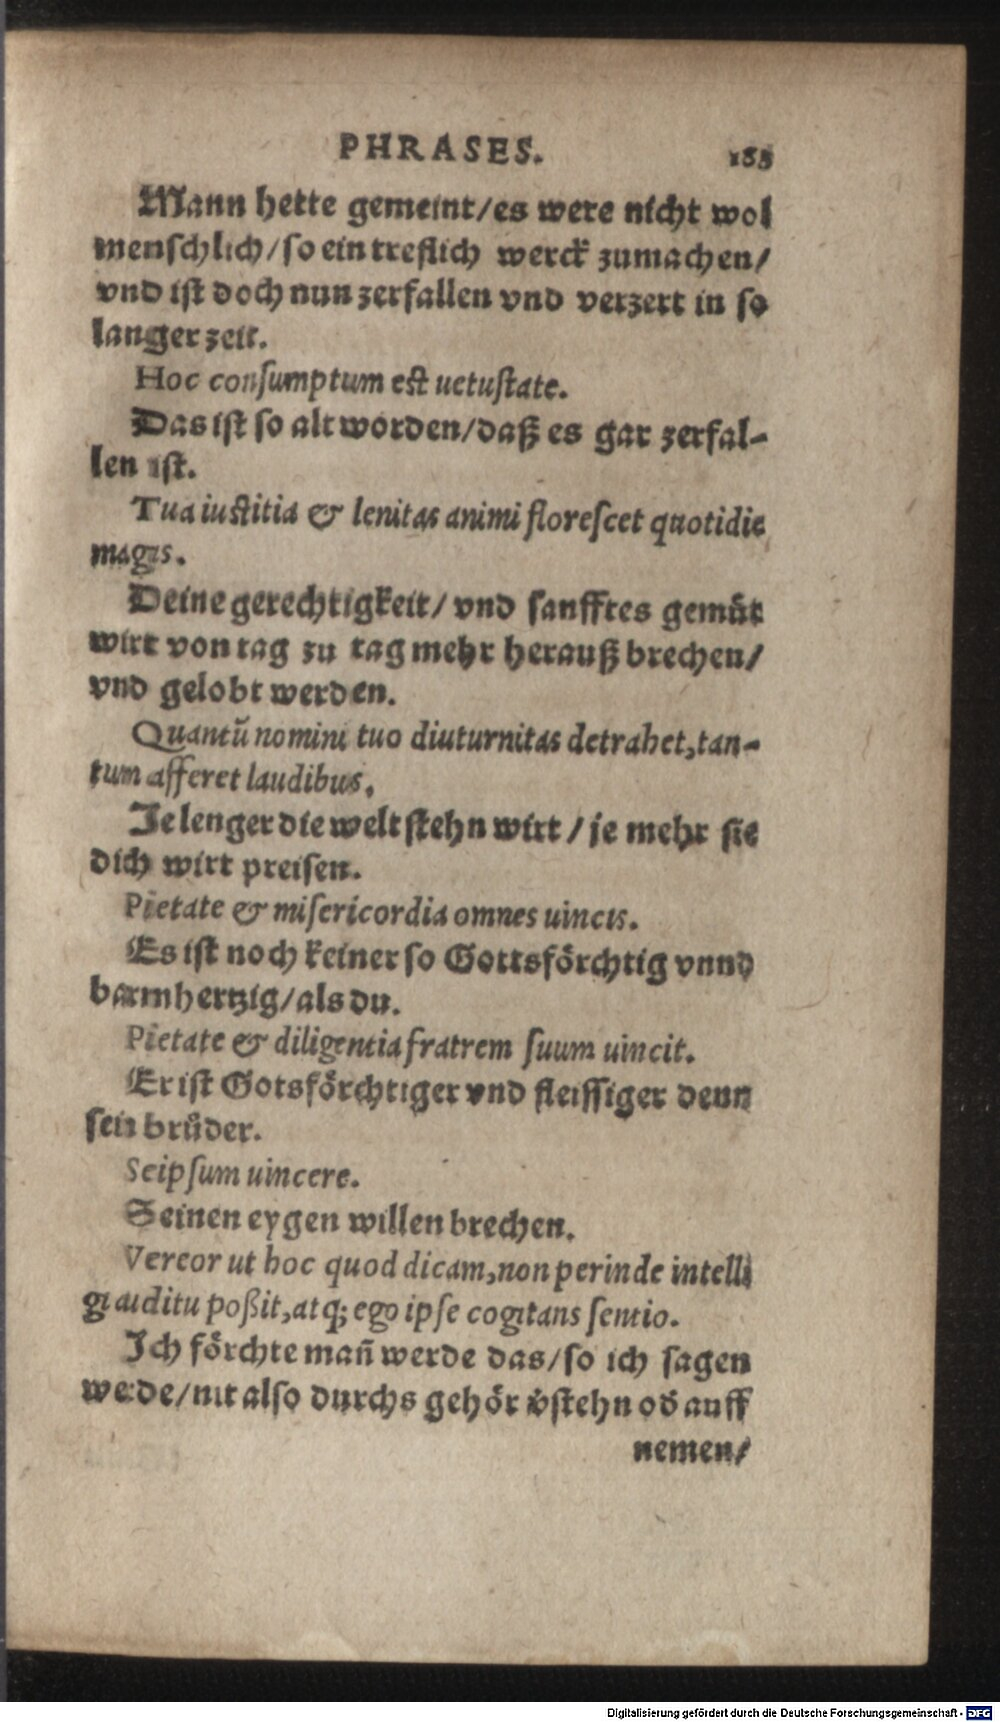 PHRASES. 185
Mann hette gemeint/es were nicht wol
menschlich/so ein treflich werck zumachen/
vnd ist doch nun zerfallen vnd verzert in so
langer zeit.
Hoc consumptum est uetustate.
Das ist so alt worden/daß es gar zerfal-
len ist.
Tua iustitia & lenitas animi florescet quotidie
magis.
Deine gerechtigkeit/ vnd sanfftes gemůt
wirt von tag zu tag mehr herauß brechen/
vnd gelobt werden.
Quantũ nomini tuo diuturnitas detrahet,tan-
tum afferet laudibus.
Je lenger die welt stehn wirt / je mehr sie
dich wirt preisen.
Pietate & misericordia omnes uincis.
Es ist noch keiner so Gottsförchtig vnnd
barmhertzig/als du.
Pietate & diligentia fratrem suum uincit.
Er ist Gotsförchtiger vnd fleissiger denn
sein brůder.
Seipsum uincere.
Seinen eygen willen brechen.
Vereor ut hoc quod dicam,non perinde intelli
gi auditu poßit,atq; ego ipse cogitans sentio.
Ich förchte mañ werde das/so ich sagen
werde/nit also durchs gehör v̊stehn od̓ auff
nemen/
Digitalisierung gefördert durch die Deutsche Forschungsgemeinschaft - DFG